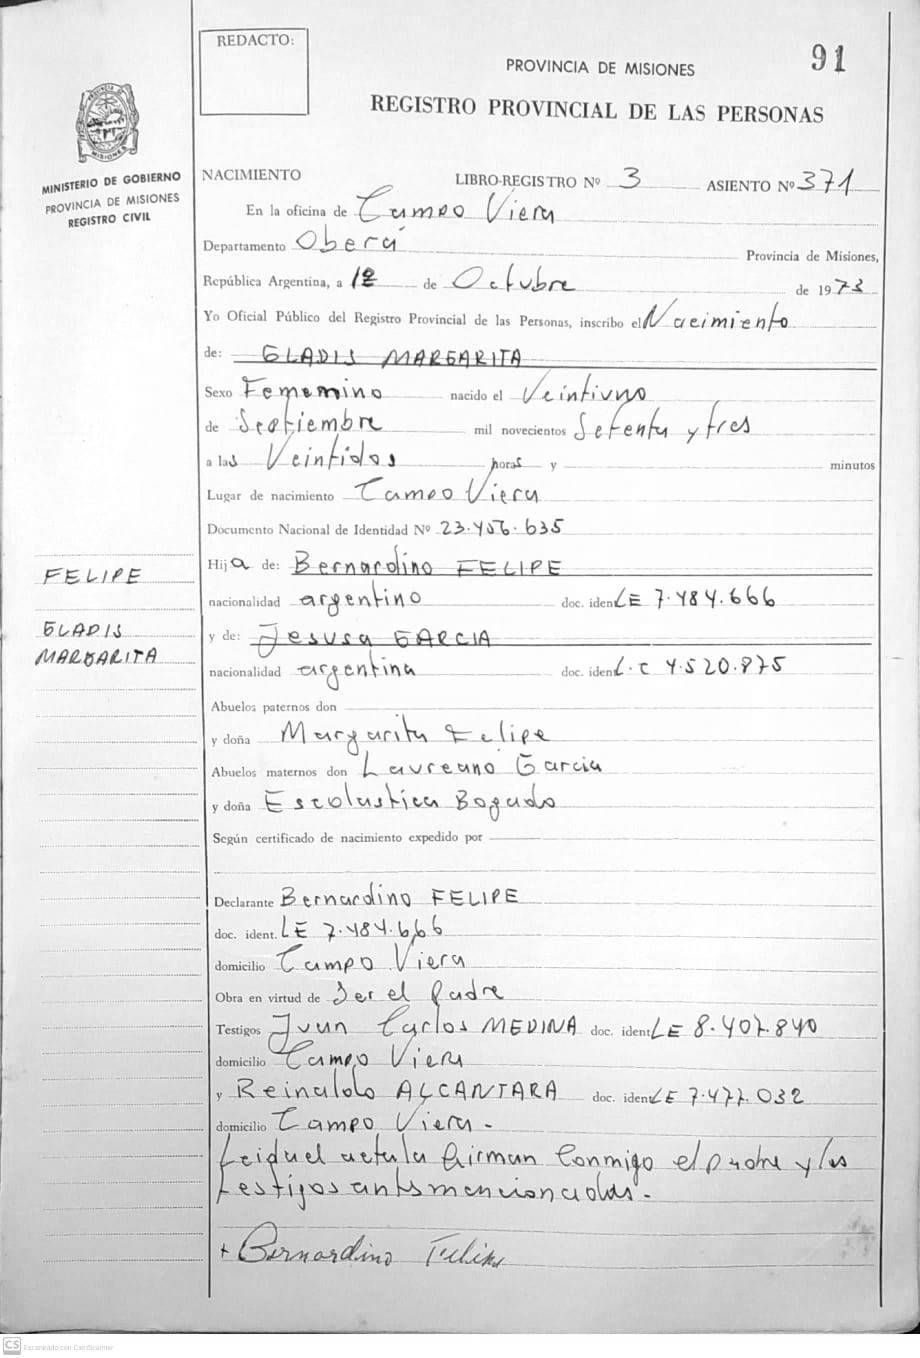 REDACTO:
91
PROVINCIA DE MISIONES
REGISTRO PROVINCIAL DE LAS PERSONAS
PROVINCIA DE
MISIONES
MINISTERIO DE GOBIERNO
PROVINCIA DE MISIONES
REGISTRO CIVIL
NACIMIENTO LIBRO-REGISTRO Nº 3 ASIENTO Nº 371
En la oficina de Campo Viera
Departamento Oberá Provincia de Misiones,
República Argentina, a 12 de Octubre de 1973
Yo Oficial Público del Registro Provincial de las Personas, inscribo el Nacimiento
de: GLADIS MARGARITA
Sexo Femenino nacido el Veintiuno
de Septiembre mil novecientos Setenta y tres
a las Veintidos horas y minutos
Lugar de nacimiento Campo Viera
Documento Nacional de Identidad Nº 23.456.635
Hija de: Bernardino FELIPE
nacionalidad argentino doc. iden LE 7.484.666
y de: Jesusa GARCIA
nacionalidad argentina doc. iden L.C 4.520.875
Abuelos paternos don
y doña Margarita Felipe
Abuelos maternos don Laureano Garcia
y doña Escolastica Bogado
Según certificado de nacimiento expedido por
Declarante Bernardino FELIPE
doc. ident. LE 7.484.666
domicilio Campo Viera
Obra en virtud de Ser el Padre
Testigos Juan Carlos MEDINA doc. ident LE 8.407.840
domicilio Campo Viera
y Reinaldo ALCANTARA doc. iden LE 7.477.032
domicilio Campo Viera -
Leida el acta la firman Conmigo el padre y los
testigos antes mencionados.-
+ Bernardino Felipe
FELIPE
GLADIS
MARGARITA
CS Escaneado con CamScanner